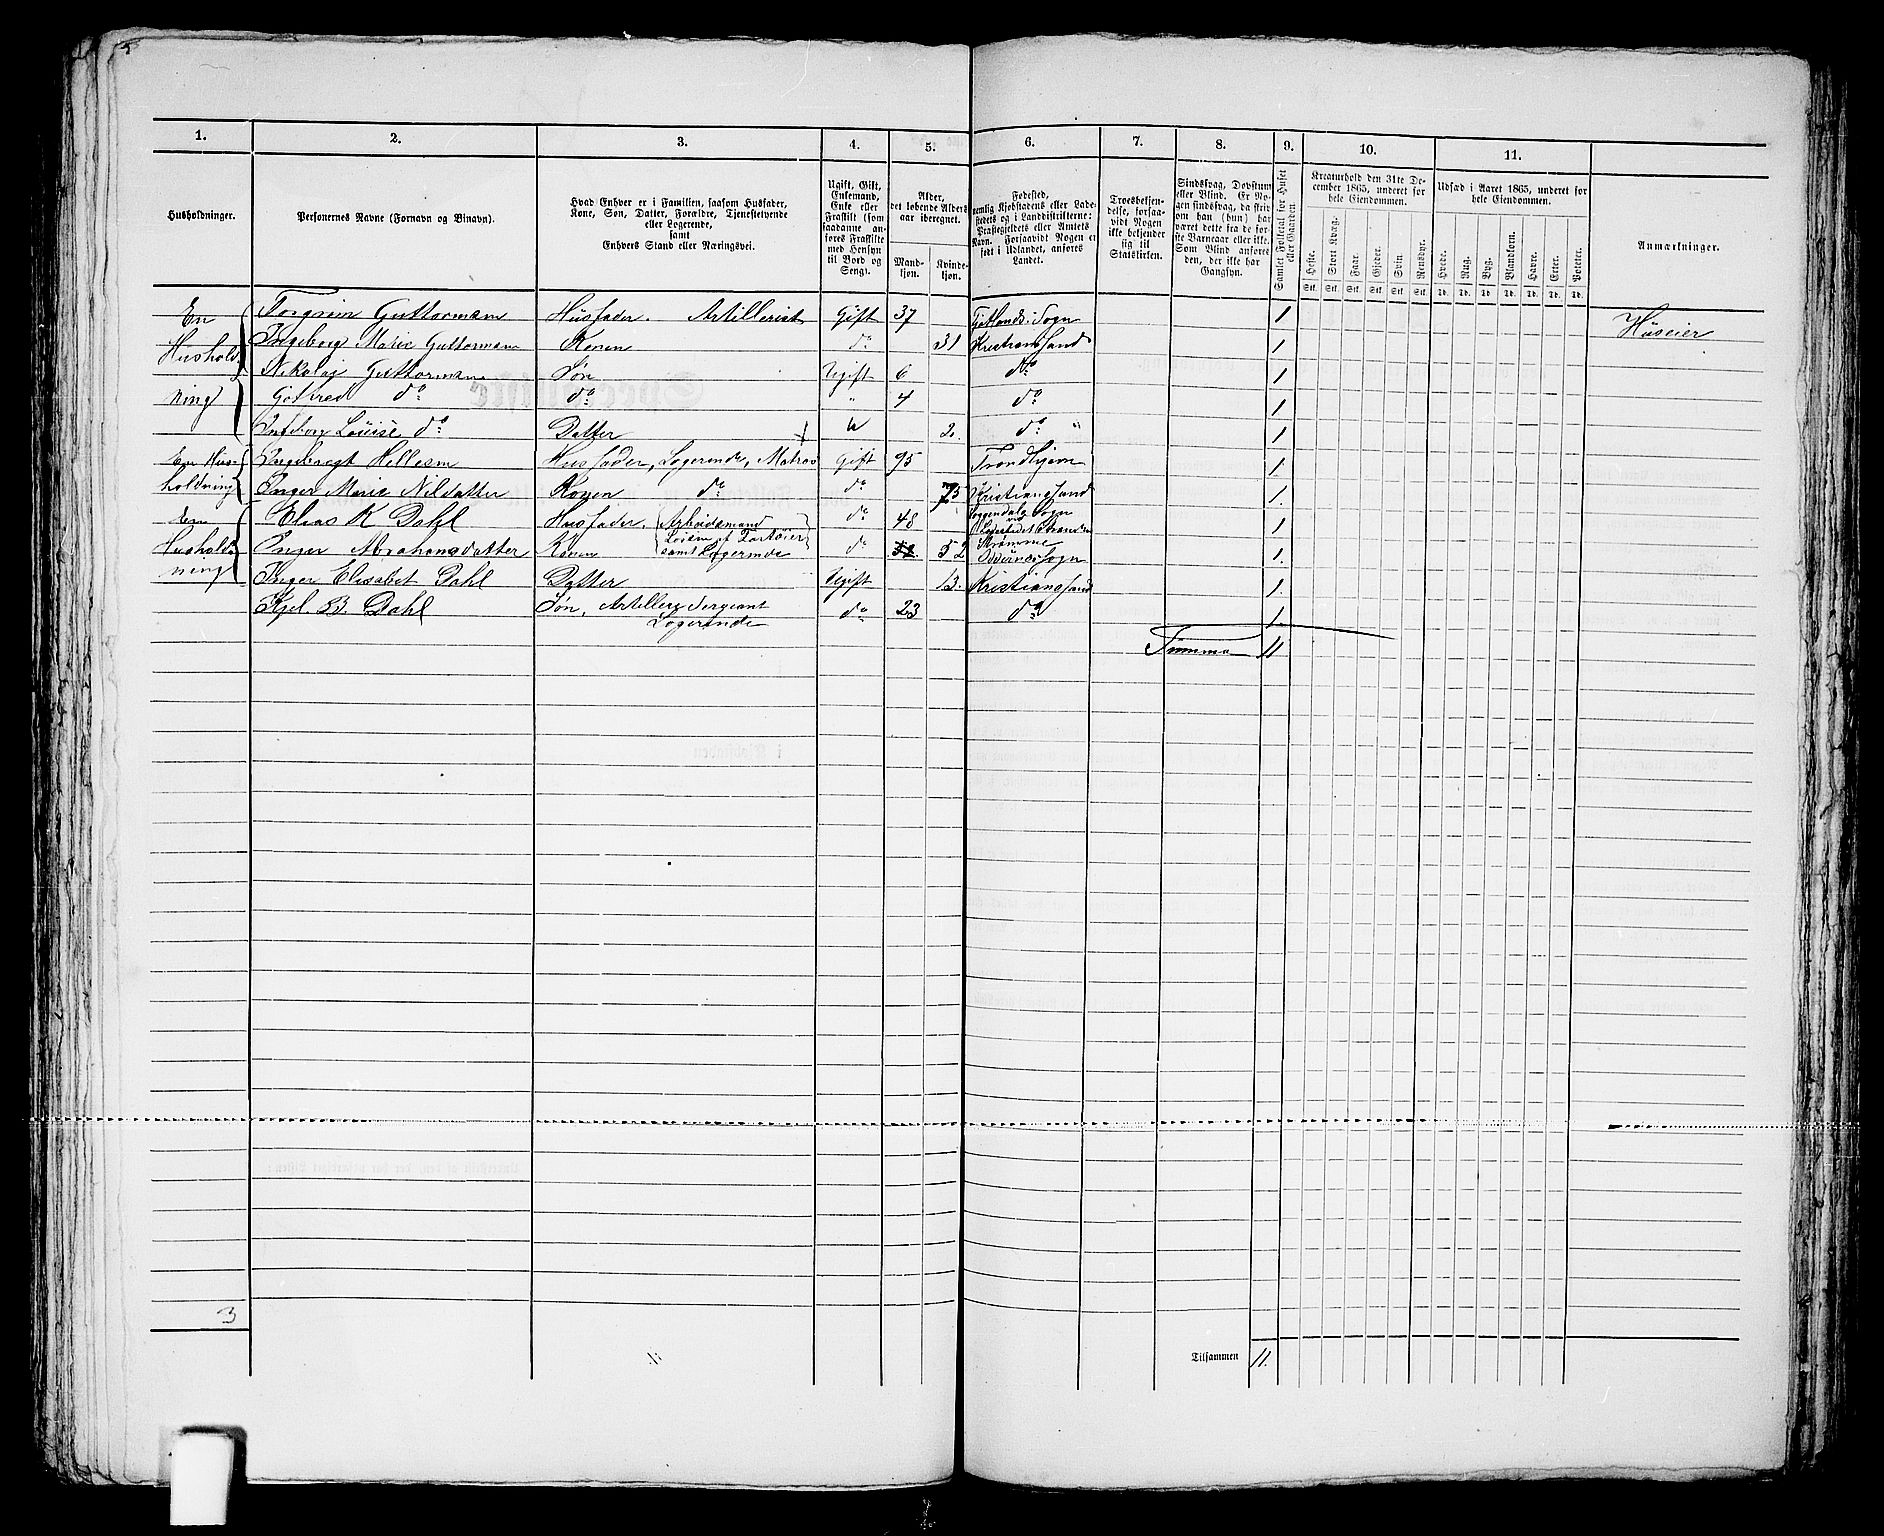 1. 2. 3. 4. 5. 6. 7. 8. 9. 10. 11.
Husholdninger.
Personernes Navne (Fornavn og Binavn).
Hvad Enhver er i Familien, saasom Husfader,
Kone, Søn, Datter, Forældre, Tjenestetyende
eller Logerende,
samt
Enhvers Stand eller Næringsvei.
Ugift, Gift,
Enkemand,
Enke eller
Fraskilt (som
saadanne an-
føres Fraskilte
med Hensyn
til Bord og
Seng).
Alder,
det løbende Alders-
aar iberegnet.
Mand-
kjøn.
Kvinde-
kjøn.
Fødested,
nemlig Kjøbstadens eller Lade-
stedets og i Landdistrikterne:
Præstegjeldets eller Amtets
Navn. Forsaavidt Nogen er
født i Udlandet, anføres
Landet.
Troesbekjen-
delse, forsaa-
vidt Nogen
ikke bekjender
sig til
Statskirken.
Sindssvag, Døvstum
eller Blind. Er No-
gen sindssvag, da skri-
ves om han (hun) har
været dette fra de før-
ste Barneaar eller ikke.
Som Blind anføres
den, der ikke har
Gangsyn.
Samlet Folketal for Huset
eller Gaarden
Kreaturhold den 31te De-
cember 1865, underet for
hele Eiendommen.
Heste. Stort Kvæg. Faar. Gjeder. Svin. Rensdyr.
Stk. Stk. Stk. Stk. Stk. Stk.
Udsæd i Aaret 1865, underet for
hele Eiendommen.
Hvede. Rug. Byg. Blandkorn. Havre. Erter. Poteter.
Td. Td. Td. Td. Td. Td. Td.
Anmærkninger.
En Guttormsen Husfader. Artillerist Gift 37 Sogn 1 Huseier
Hushold Ingeborg Marie Guttormsen Konen do 31 Kristianssand 1
Nikolaj Guttormsen Søn Ugift 6 do 1
ning Gotfred do do " 4 do 1
Louise do Datter 2. do " 1
En Hus- Ingebregt Hellesen Husfader, Logerende, Matros Gift 95 Trondhjem 1
holdning Inger Marie Nilsdatter Konen do do 75 Kristianssand 1.
En Elias K Dahl Husfader. Arbeidsmand do 48 Sogn 1
Hushold- Inger Abrahamsdatter Konen samt Logerende do 52 Oddernes Sogn 1.
ning Inger Elisabet Dahl Datter Ugift 13. Kristianssand 1.
Kjel B. Dahl Søn, Artilleri Sergeant do 23 do 1.
Logerende
Summa 11
3
Tilsammen 11.